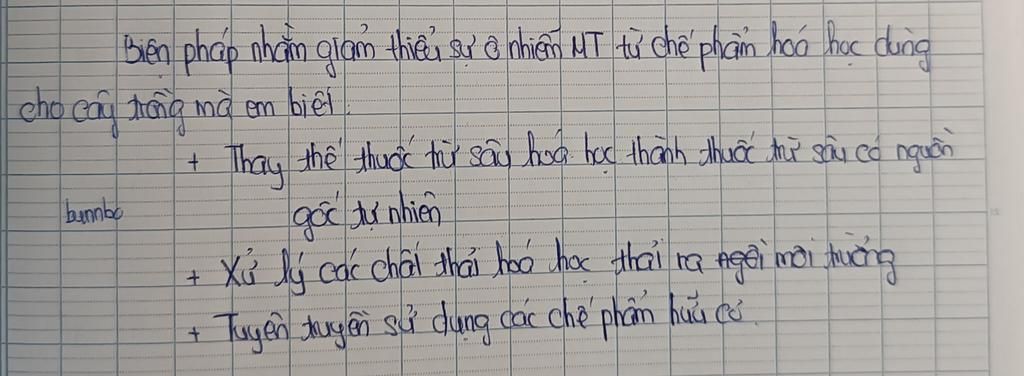 Biện pháp nhằm giảm thiểu sự ô nhiễm MT từ chế phẩm hoá học dùng
cho cây trồng mà em biết.
+ Thay thế thuốc trừ sâu hoá học thành thuốc trừ sâu có nguồn
bunnbo gốc tự nhiên
+ Xử lý các chất thải hoá học thải ra ngoài môi trường
+ Tuyên truyền sử dụng các chế phẩm hữu cơ.